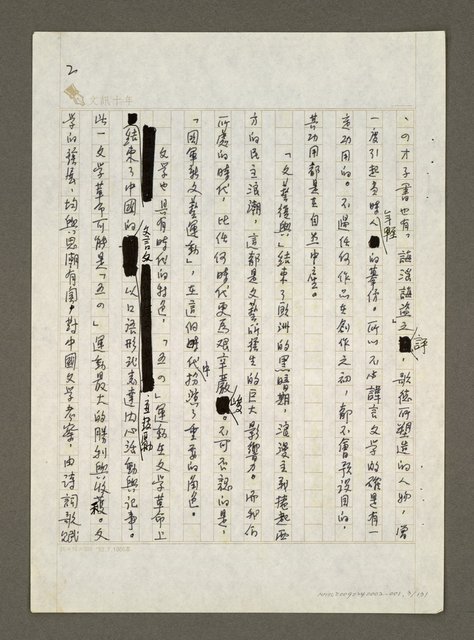 2
文訊十年
、の才子書也有，誨淫誨盜之評，歌德所塑造的人物，曾
一度引起當時人年輕的摹仿。所以不必諱言文學的確是有一
定功用的。不過任何作品在創作之初，都不會預設目的，
其功用都是在自然中產生。
「文藝復興」結束了歐洲的黑暗期，浪漫主義捲起西
方的民主浪潮，這都是文藝所發生的巨大影響力。而我們
所處的時代，比任何時代更為艱辛嚴峻。不可否認的是，
「國軍新文藝運動」，在這個時代中扮演了重要的角色。
文學也具有時代的特色，「五四」運動在文學革命上
結束了中國的文言文，以口語形式來表達內心活動與記事。
此一文學革命可能是「五四」運動最大的勝利與收穫。文
學的發展，均與思潮有關。對中國文學考察，由詩詞歌賦